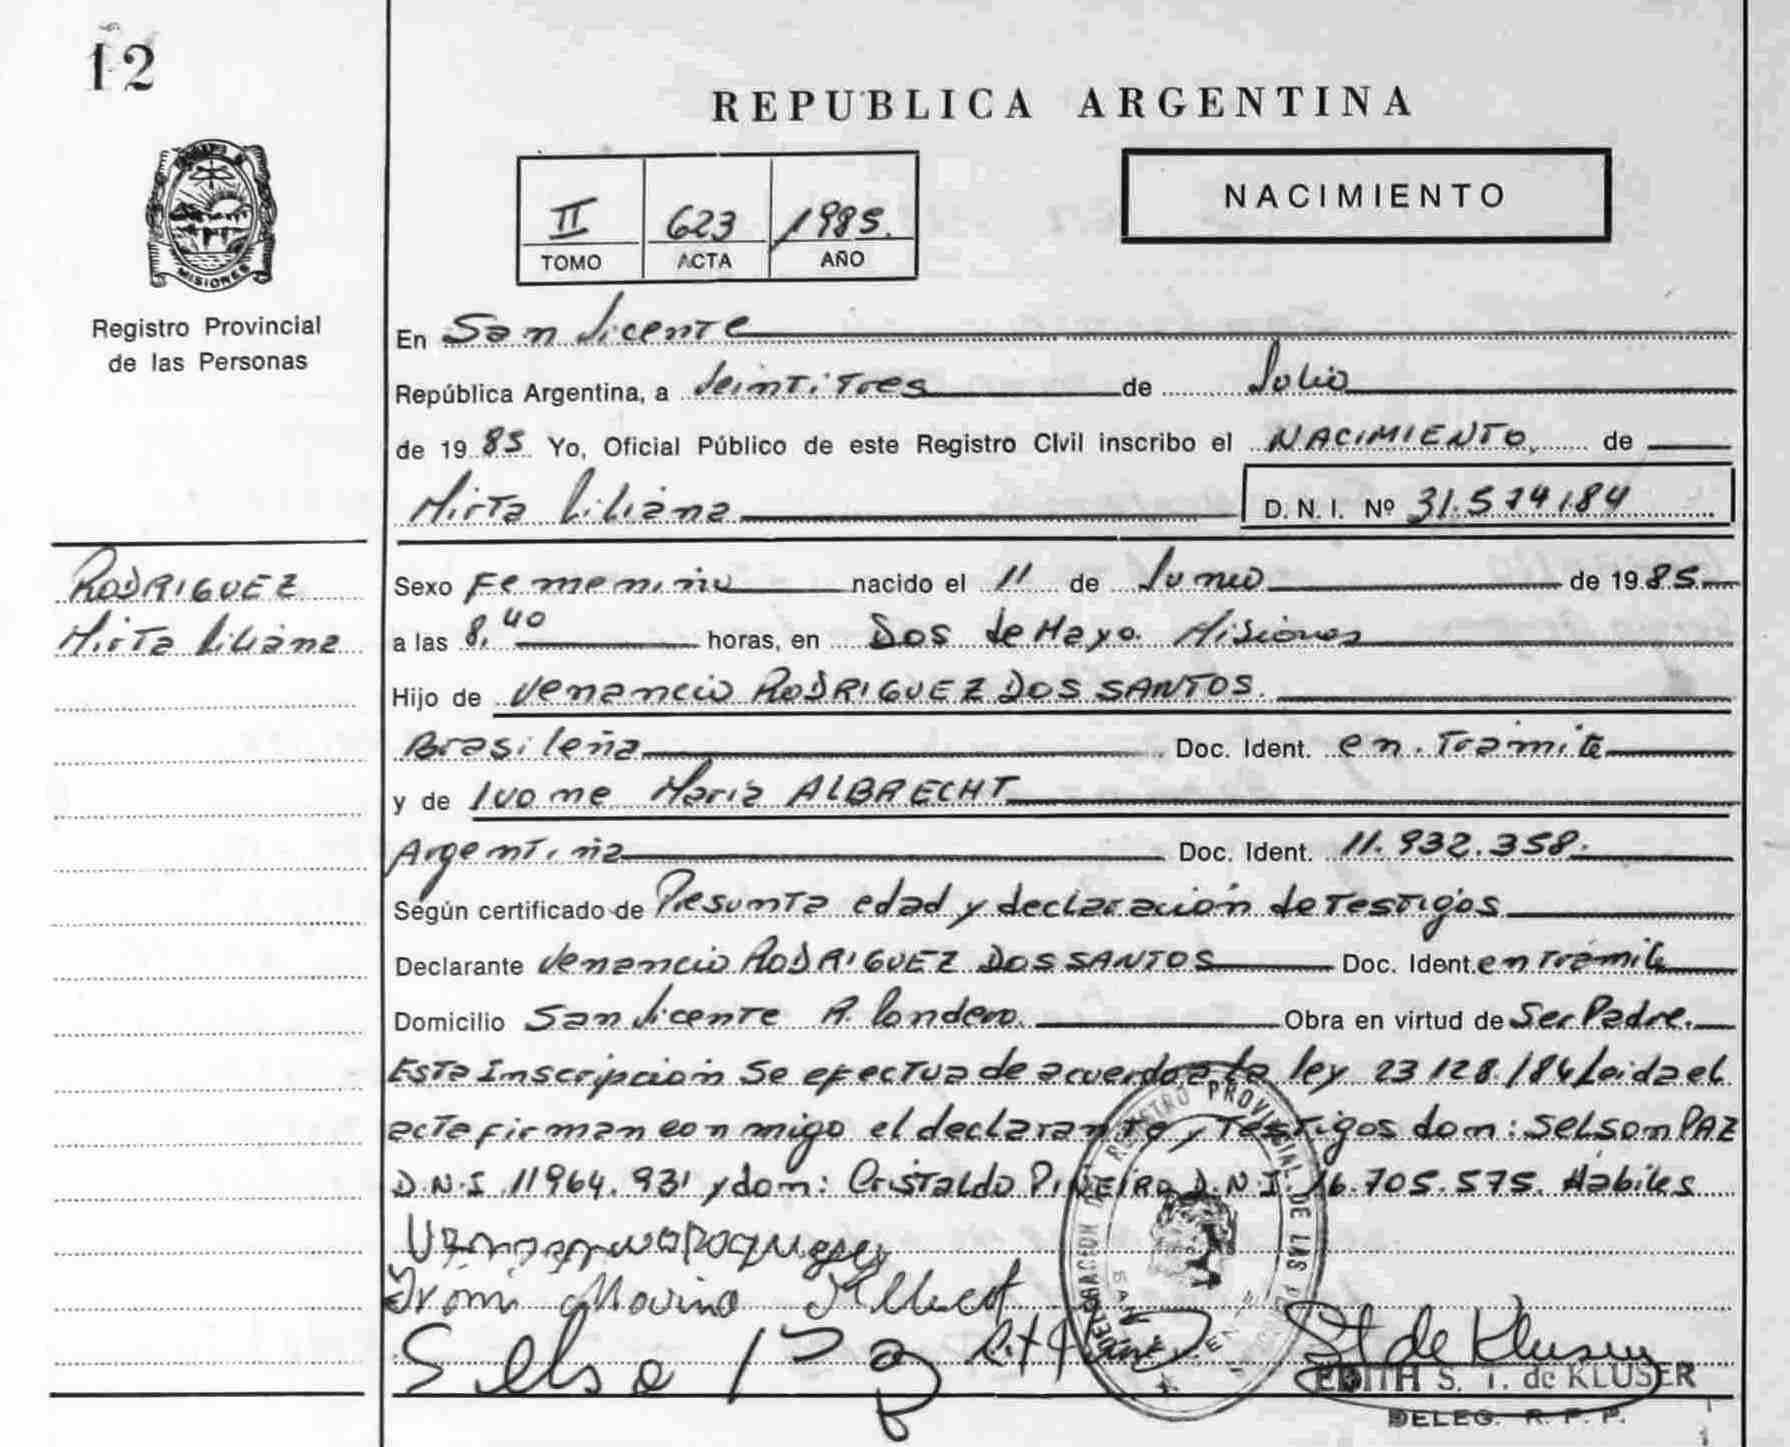 12
REPUBLICA ARGENTINA
NACIMIENTO
II 623 1985.
TOMO ACTA AÑO
MISIONES
Registro Provincial
de las Personas
En San Vicente
República Argentina, a Veintitres de Julio
de 1985 Yo, Oficial Público de este Registro Civil inscribo el NACIMIENTO, de
Mirta Liliana D. N. I. Nº 31.574184
RODRIGUEZ
Mirta Liliana
Sexo Femenino nacido el 11 de Junio de 1985
a las 8,40 horas, en Dos de Mayo. Misiones
Hijo de Venancio RODRIGUEZ DOS SANTOS.
Brasileña Doc. Ident. en Tramite
y de Ivone Maria ALBRECHT
Argentina Doc. Ident. 11.932.358.
Según certificado de Presunta edad y declaración de Testigos
Declarante Venancio RODRIGUEZ DOS SANTOS Doc. Ident. en tramite
Domicilio San Vicente A. Londero. Obra en virtud de Ser Padre.
Esta Inscripción Se efectua de acuerdo a la ley 23128/84 Leida el
acta firman conmigo el declarante y Testigos don: Selson PAZ
D.N.I. 11964.931 y don: Cristaldo PIÑEIRO D.N.I. 16.705.575. Habiles
REGISTRO PROVINCIAL DE LAS
St de Kluser
EDITH S. T. de KLUSER
DELEG. R. P. P.